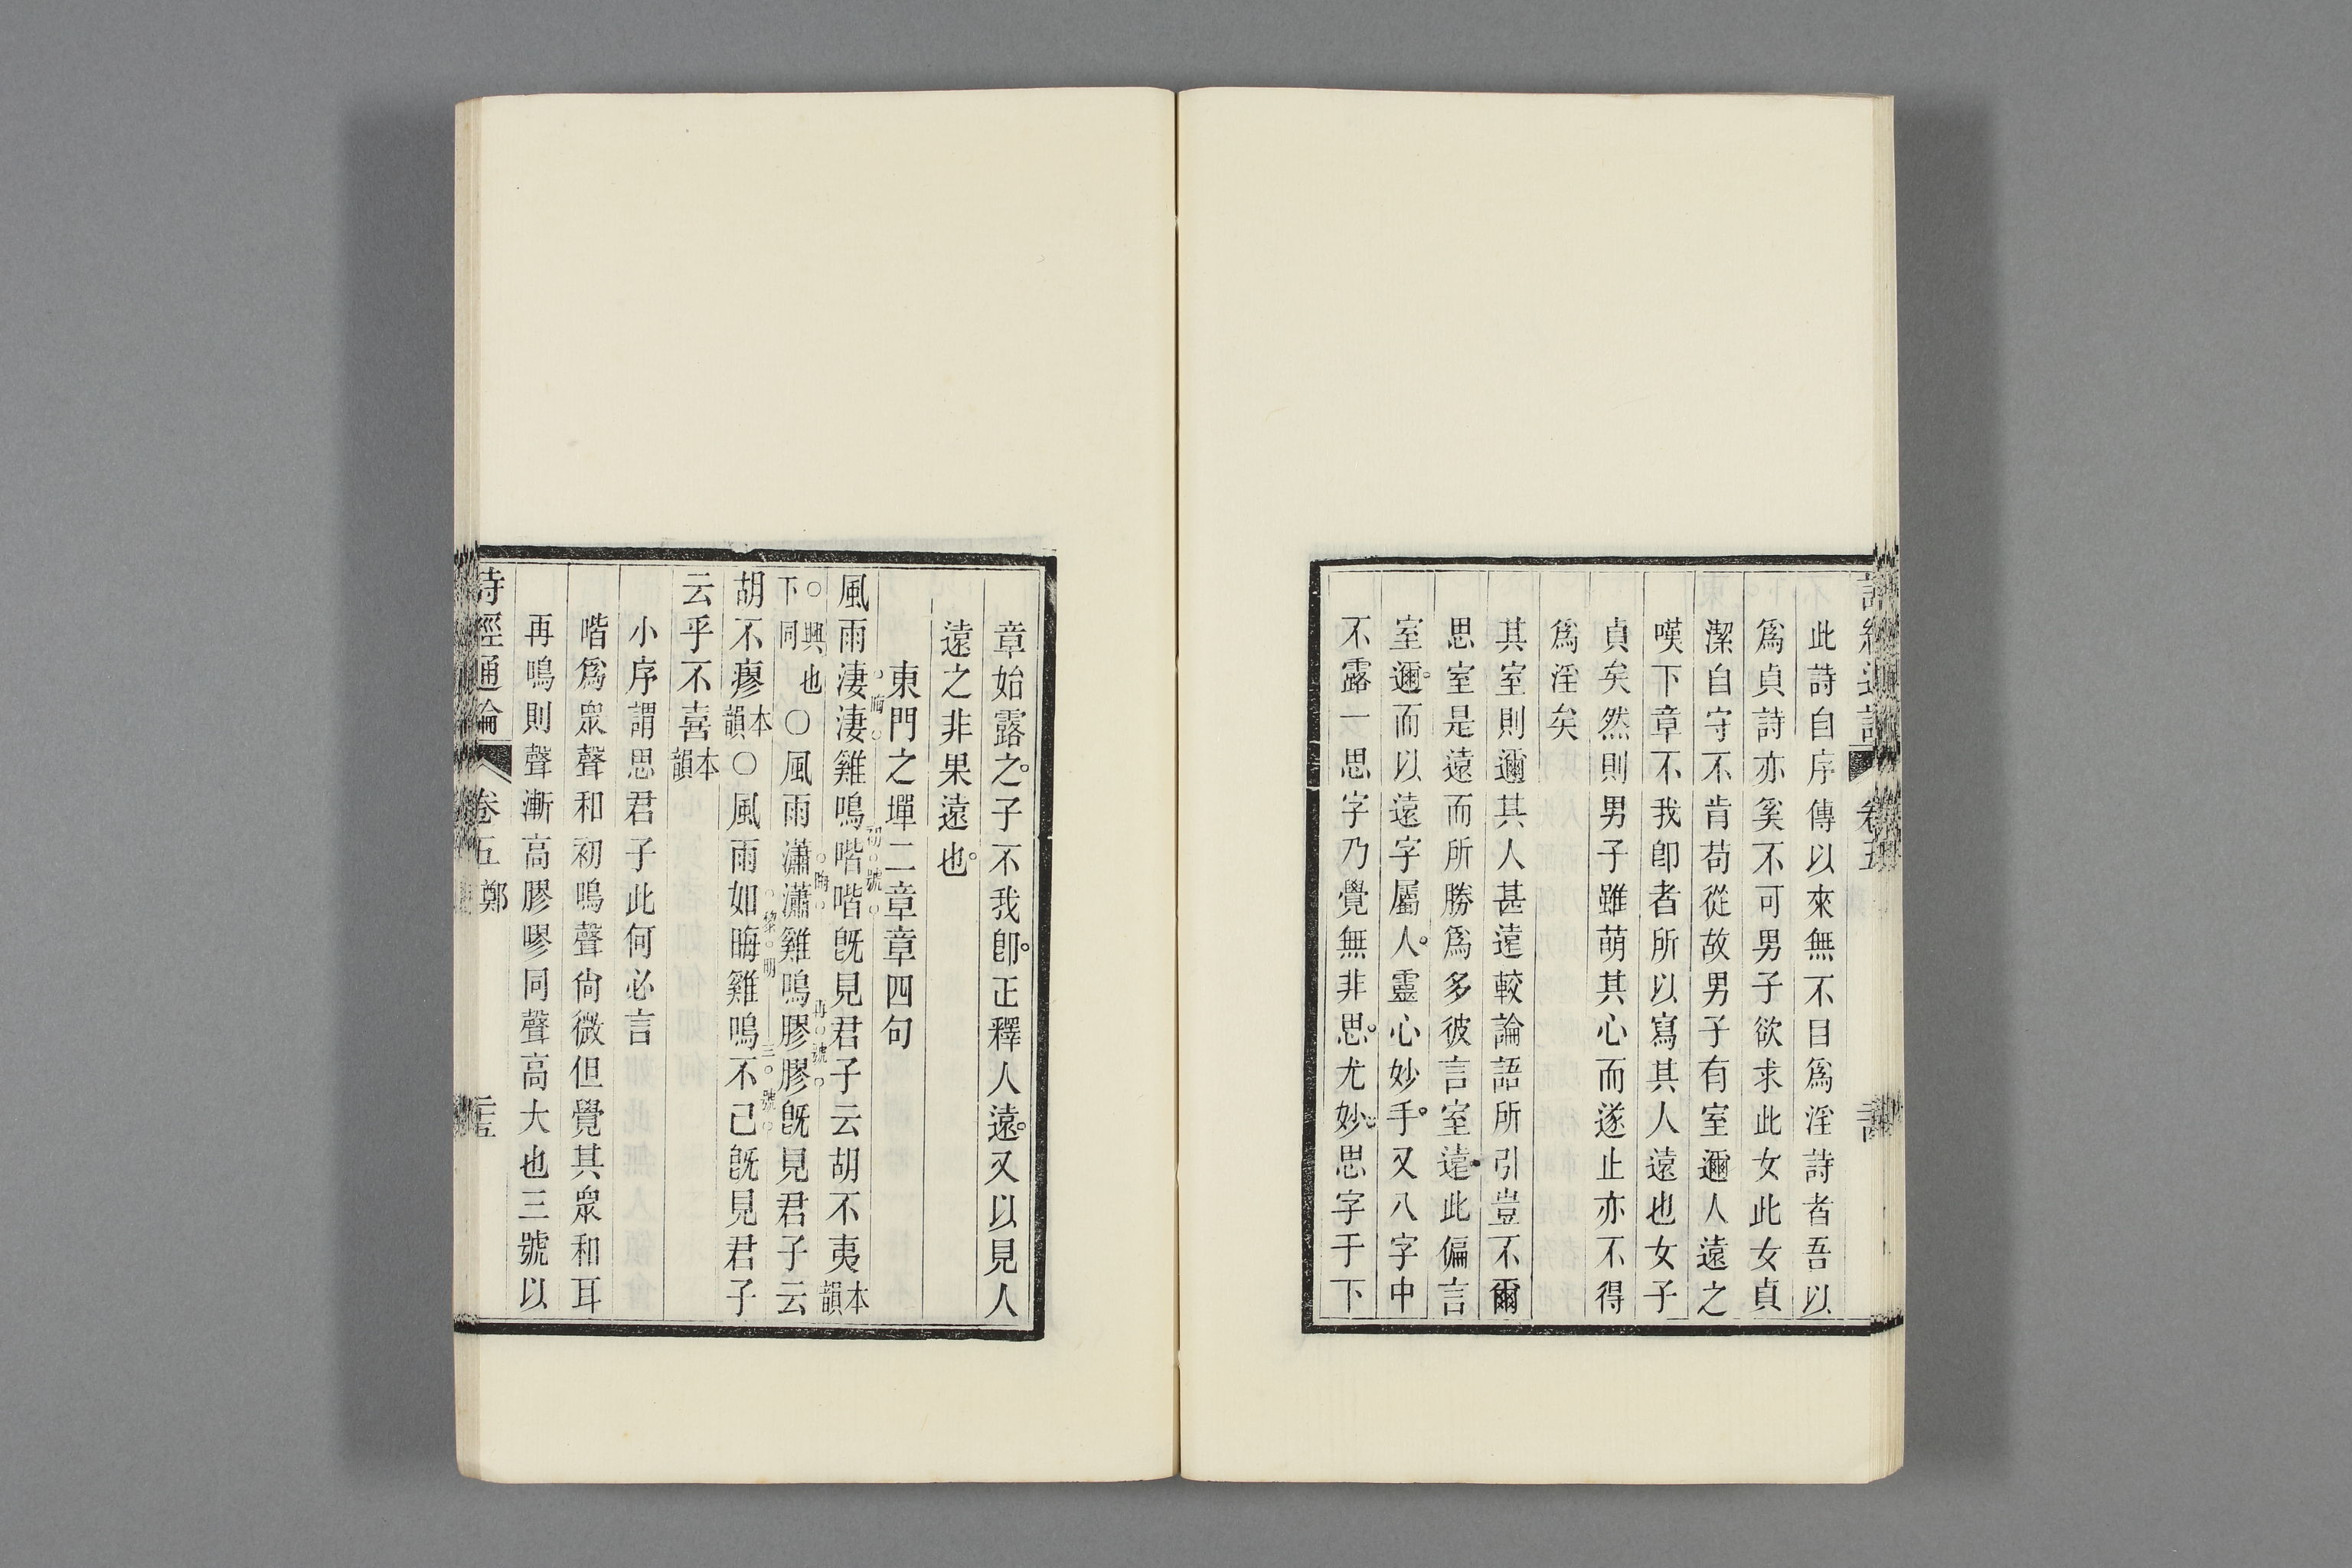 此詩自序傳以來無不目爲淫詩者吾以
爲貞詩亦奚不可男子欲求此女此女貞
潔自守不肯苟從故男子有室邇人遠之
嘆下章不我卽者所以寫其人遠也女子
貞矣然則男子雖萌其心而遂止亦不得
爲淫矣
其室則邇其人甚遠較論語所引豈不爾
思室是遠而所勝爲多彼言室遠此偏言
室邇而以遠字屬人靈心妙手又八字中
不露一思字乃覺無非思尤妙思字于下
章始露之子不我卽正釋人遠又以見人
遠之非果遠也
東門之墠二章章四句
風雨淒淒雞鳴喈喈旣見君子云胡不夷本韻
○興也下同○風雨瀟瀟雞鳴膠膠旣見君子云
胡不瘳本韻○風雨如晦雞鳴不已旣見君子
云乎不喜本韻
小序謂思君子此何必言
喈爲眾聲和初鳴聲尙微但覺其眾和耳
再鳴則聲漸高膠嘐同聲高大也三號以
詩經通論 卷五 鄭